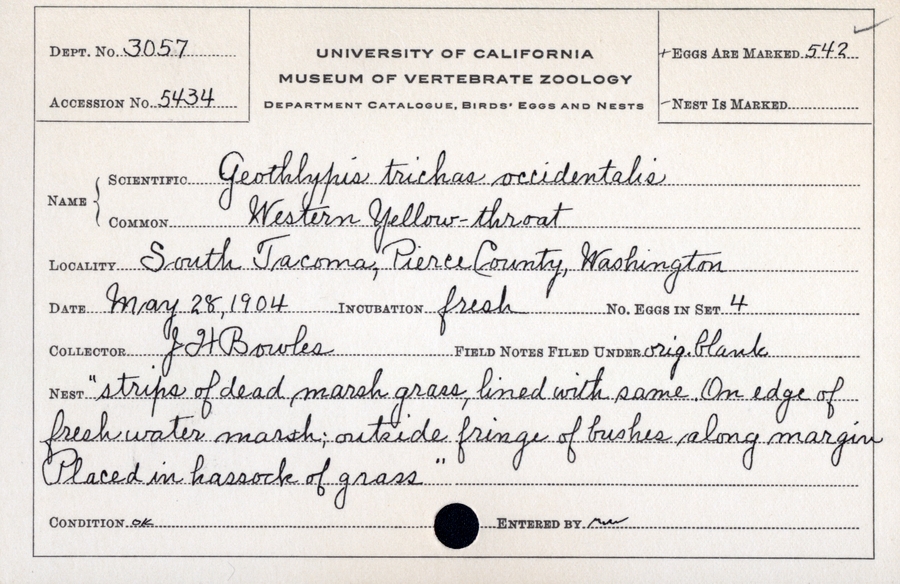 Dept. No. 3057
Accession No. 5434
UNIVERSITY OF CALIFORNIA
MUSEUM OF VERTEBRATE ZOOLOGY
Department Catalogue, Birds' Eggs and Nests
+ Eggs Are Marked 542
- Nest Is Marked
Name
Scientific Geothlypis trichas occidentalis
Common Western Yellow-throat
Locality South Tacoma, Pierce County, Washington
Date May 28, 1904 Incubation fresh No. Eggs in Set 4
Collector J H Bowles Field Notes Filed Under orig. blank
Nest "strips of dead marsh grass, lined with same. On edge of
fresh water marsh; outside fringe of bushes along margin
Placed in hassock of grass"
Condition ok Entered by